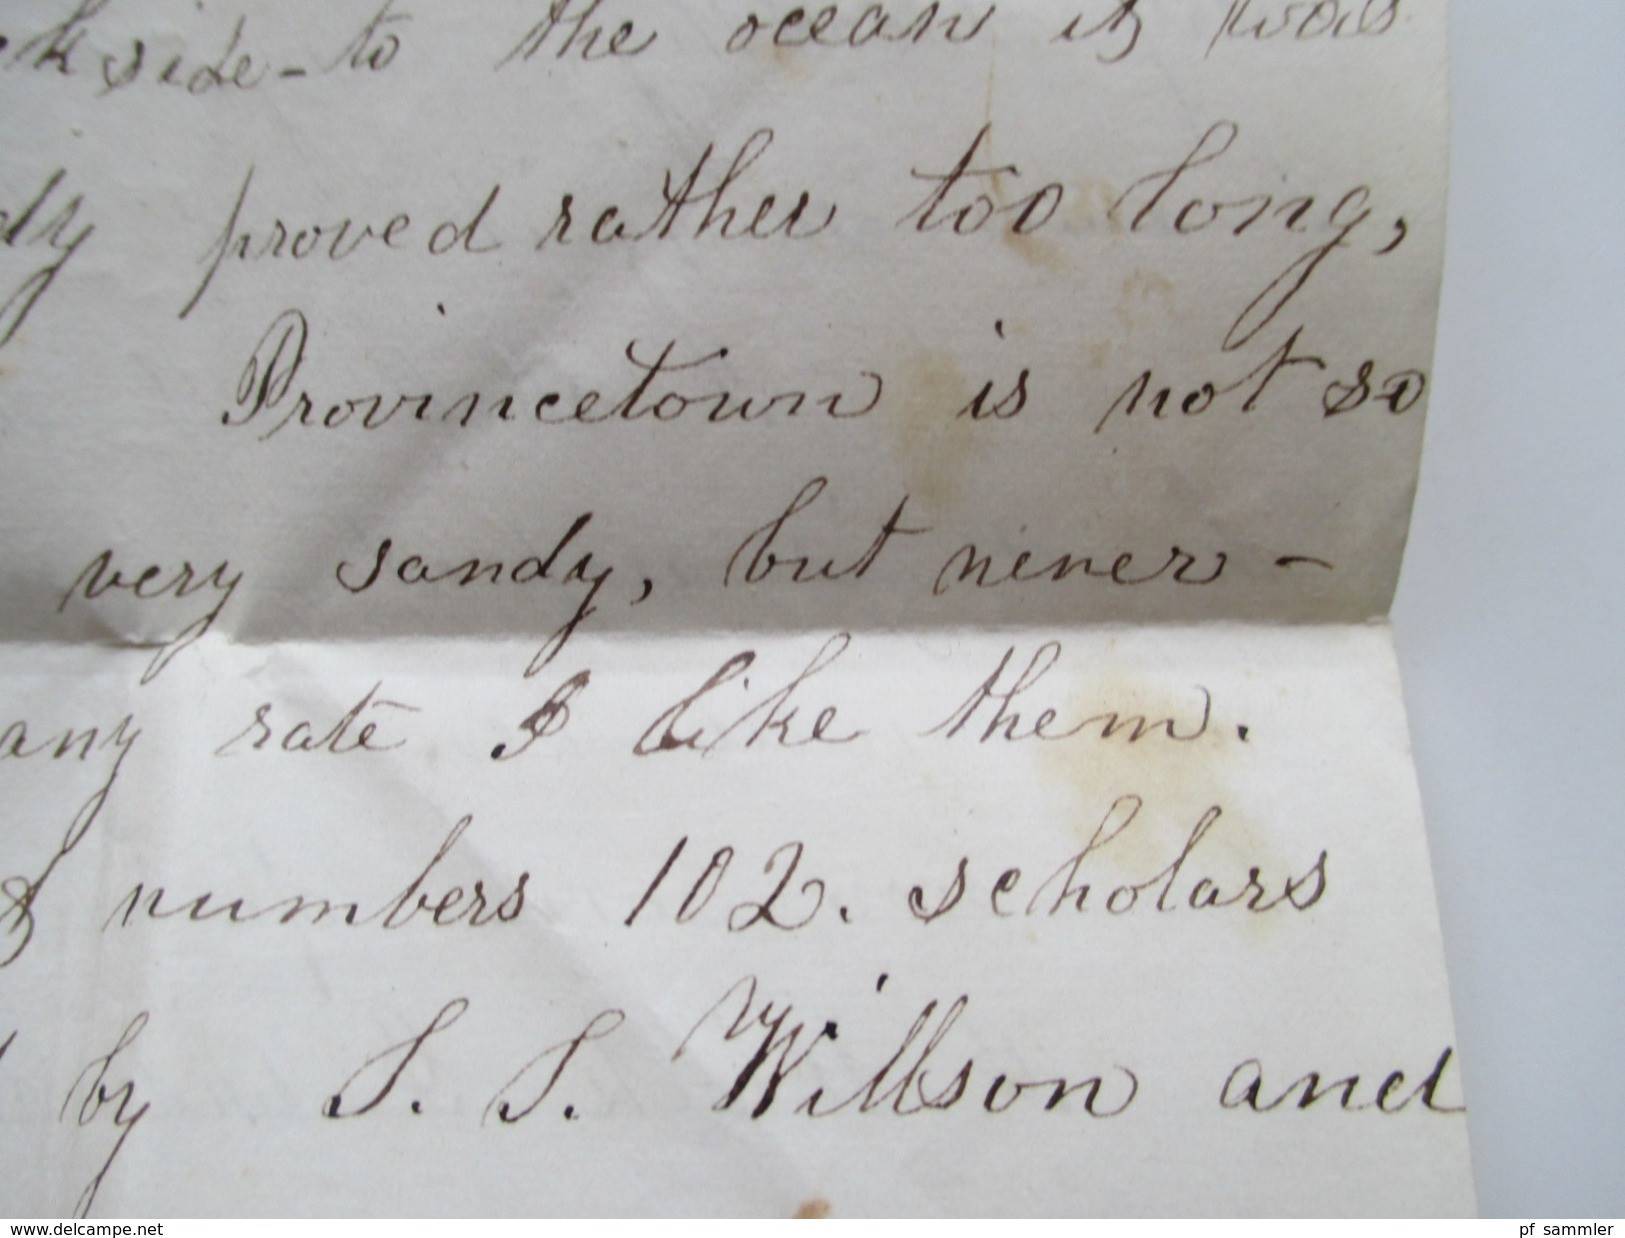 side - to the ocean it was
proved rather too long,
Provincetown is not so
very sandy, but never -
any rate I like them.
numbers 102. scholars
by S. S. Willson and
www.delcampe.net
pf sammler